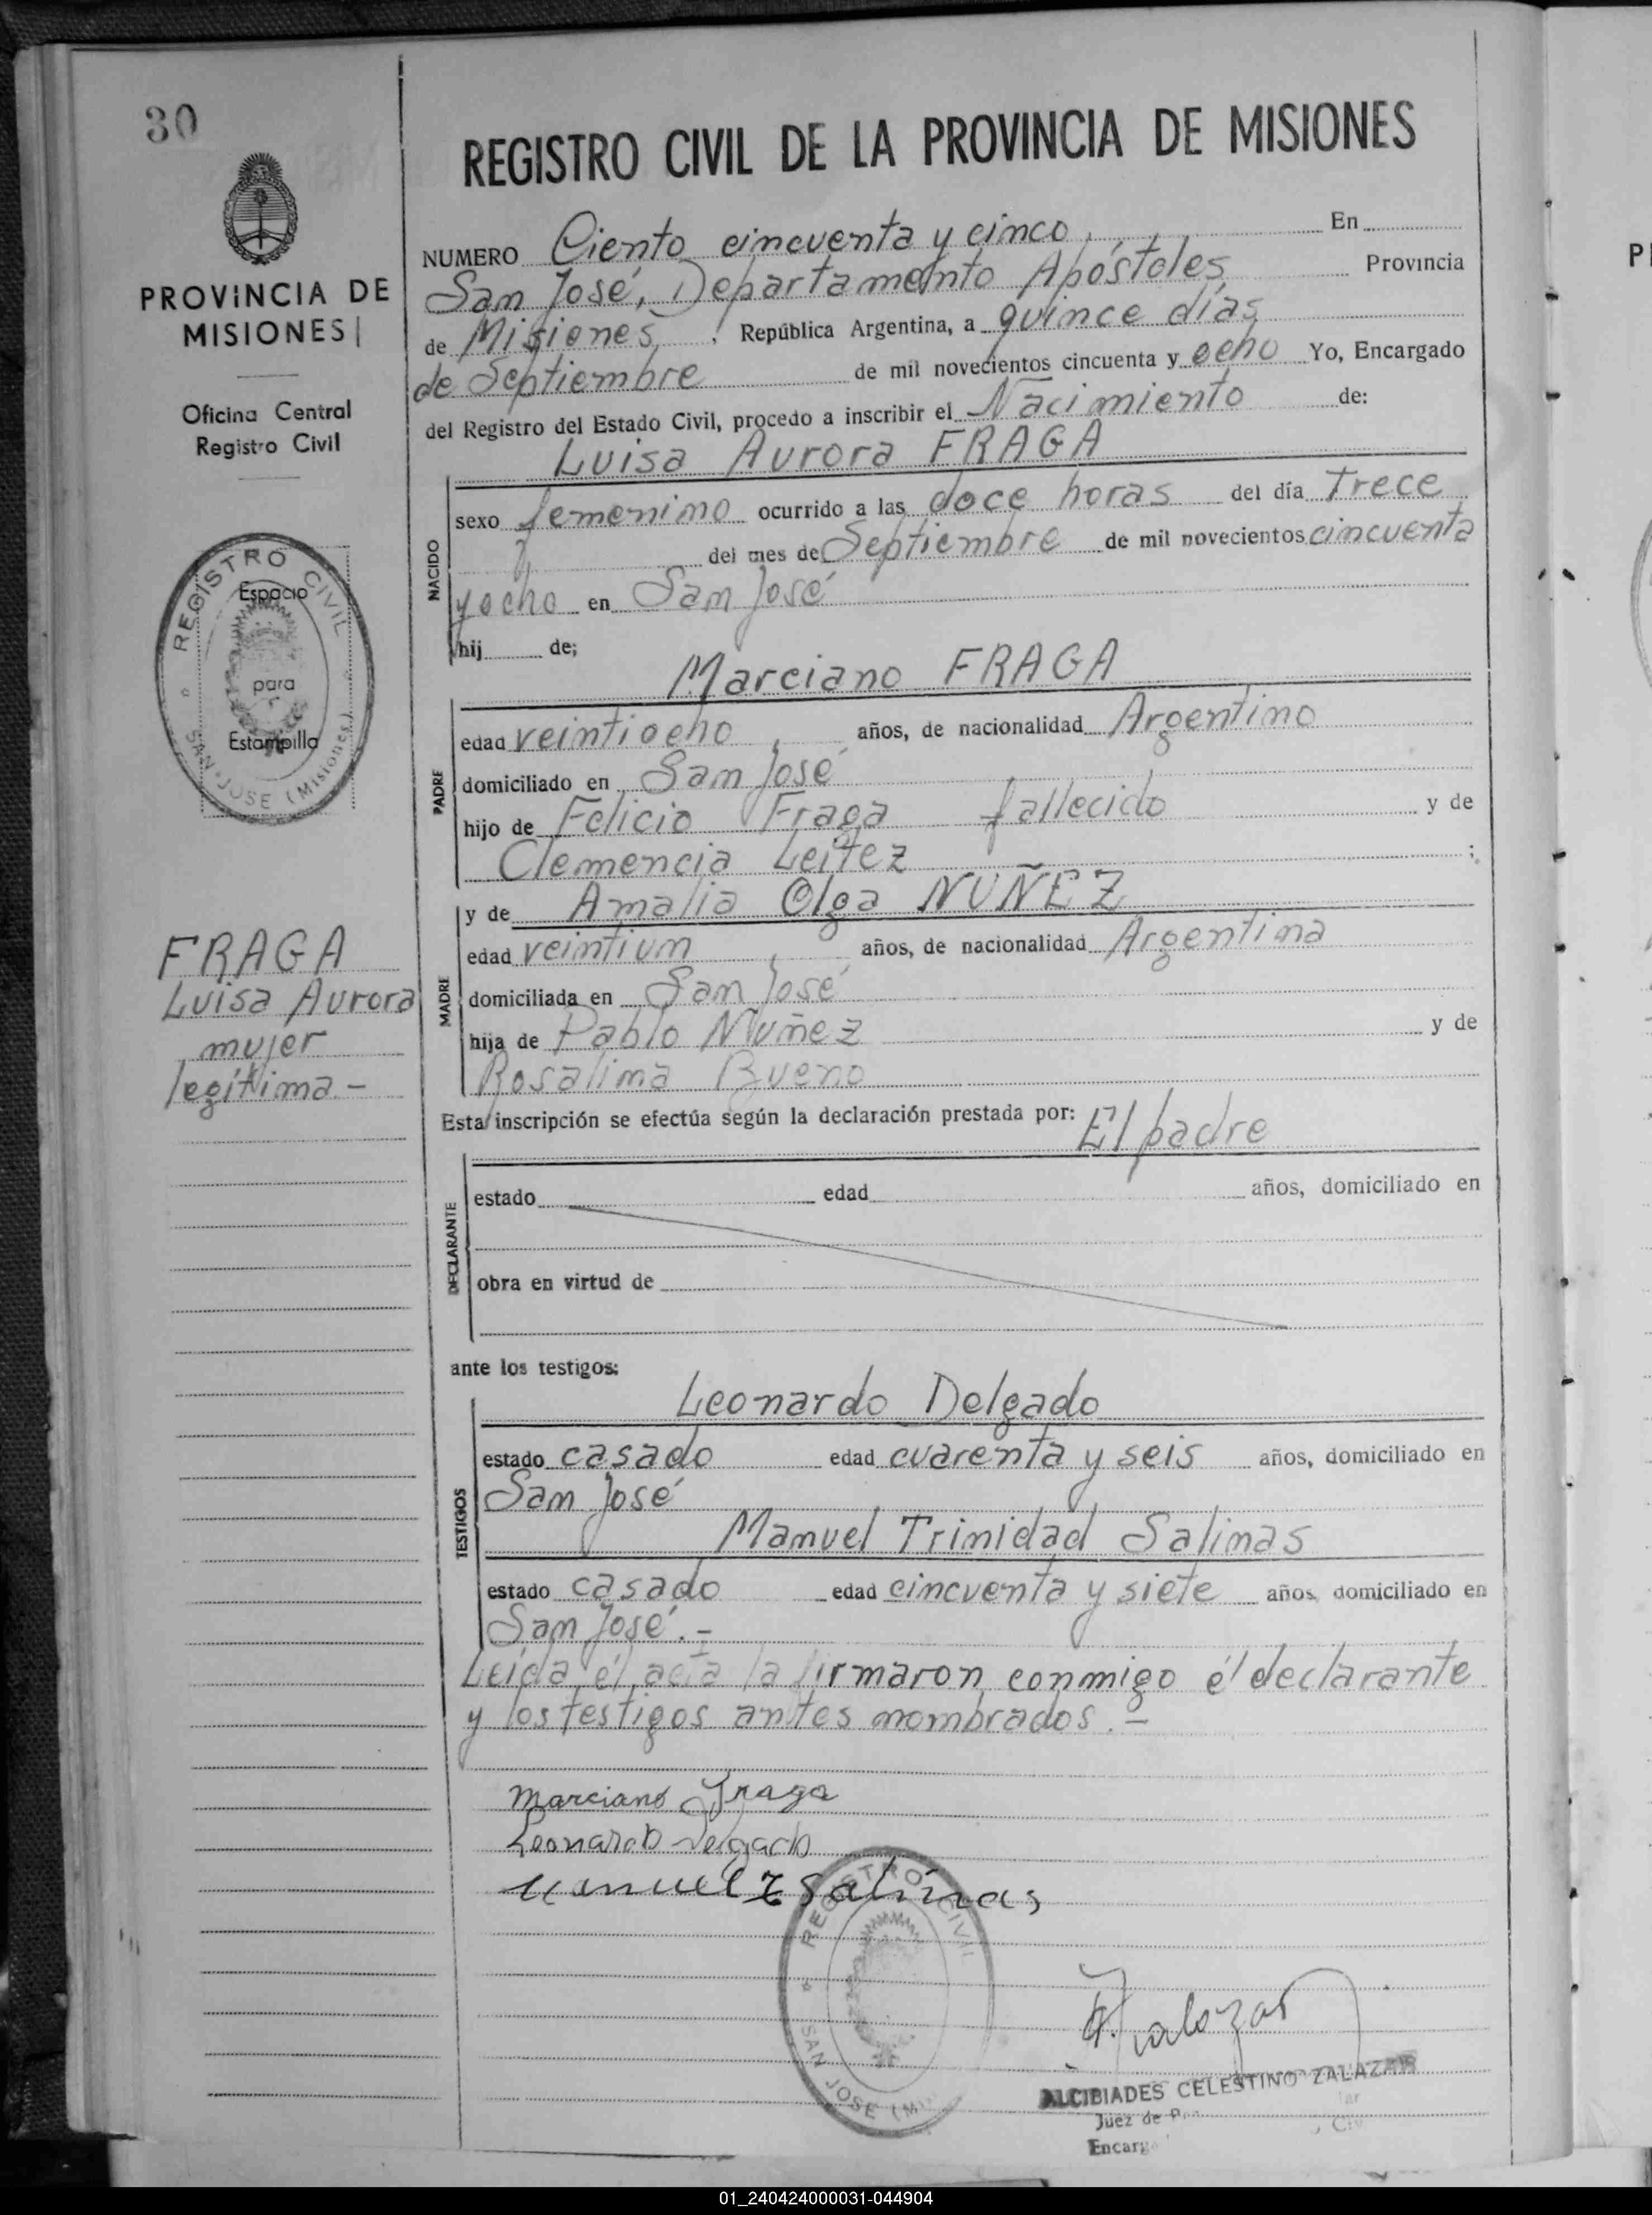 30
PROVINCIA DE
MISIONES
Oficina Central
Registro Civil
REGISTRO CIVIL
Espacio
para
Estampilla
SAN JOSE (Misiones)
FRAGA
Luisa Aurora
mujer
legítima -
REGISTRO CIVIL DE LA PROVINCIA DE MISIONES
NUMERO Ciento cincuenta y cinco. En
San José, Departamento Apóstoles Provincia
de Misiones, República Argentina, a quince días
de Septiembre de mil novecientos cincuenta y ocho Yo, Encargado
del Registro del Estado Civil, procedo a inscribir el Nacimiento de:
Luisa Aurora FRAGA
NACIDO
sexo femenino ocurrido a las doce horas del día Trece
del mes de Septiembre de mil novecientos cincuenta
y ocho en San José
hij de;
Marciano FRAGA
PADRE
edad veintiocho, años, de nacionalidad Argentino
domiciliado en San José
hijo de Felicio Fraga fallecido y de
Clemencia Leitez ;
MADRE
y de Amalia Olga NUÑEZ
edad veintiun, años, de nacionalidad Argentina
domiciliada en San José
hija de Pablo Nuñez y de
Rosalima Bueno
Esta inscripción se efectúa según la declaración prestada por: El padre
DECLARANTE
estado edad años, domiciliado en
obra en virtud de
ante los testigos:
TESTIGOS
Leonardo Delgado
estado casado edad cuarenta y seis años, domiciliado en
San José
Manuel Trinidad Salinas
estado casado edad cincuenta y siete años, domiciliado en
San José.-
Leída él acta la firmaron conmigo él declarante
y los testigos antes nombrados.-
Marciano Fraga
Leonardo Delgado
Manuel T Salinas
REGISTRO CIVIL
SAN JOSE (Mi
A. Zalazar
ALCIBIADES CELESTINO ZALAZAR
Juez de P
Encarg
P
01_240424000031-044904